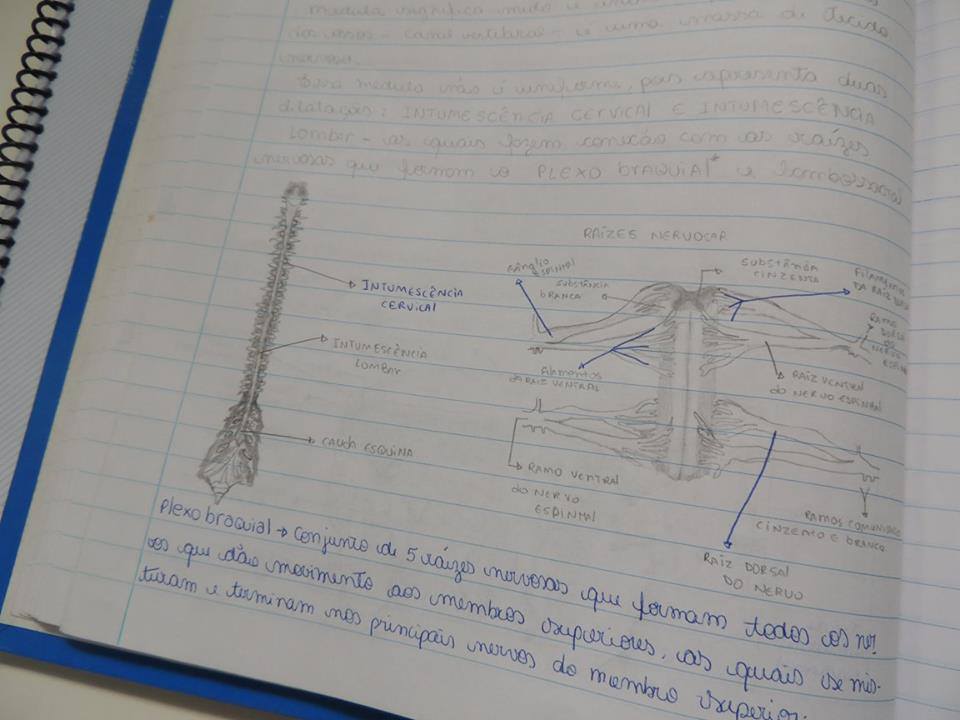 medula significa miolo e
nervoso.
Essa medula não é uniforme, pois apresenta duas
dilatações: INTUMESCÊNCIA CERVICAL E INTUMESCÊNCIA
Lombar - as quais fazem conexão com as raízes
nervosas que formam o PLEXO BRAQUIAL* e lombossacral
RAÍZES NERVOSAS
GÂNGLIO
ESPINHAL
SUBSTÂNCIA
BRANCA
SUBSTÂNCIA
CINZENTA
FILAMENTOS
DA RAIZ DORSAL
RAMO
DORSAL
DO
NERVO
ESPINHAL
INTUMESCÊNCIA
CERVICAL
INTUMESCÊNCIA
LOMBAR
Filamentos
DA RAIZ VENTRAL
RAIZ VENTRAL
do NERVO ESPINHAL
CAUDA ESQUINA
RAMO VENTRAL
do NERVO
ESPINHAL
RAMOS COMUNICANTES
CINZENTO E BRANCO
RAIZ DORSAL
DO NERVO
Plexo braquial → Conjunto de 5 raízes nervosas que formam todos os ner-
vos que dão movimento aos membros superiores, as quais se mis-
turam e terminam nos principais nervos do membro superior.